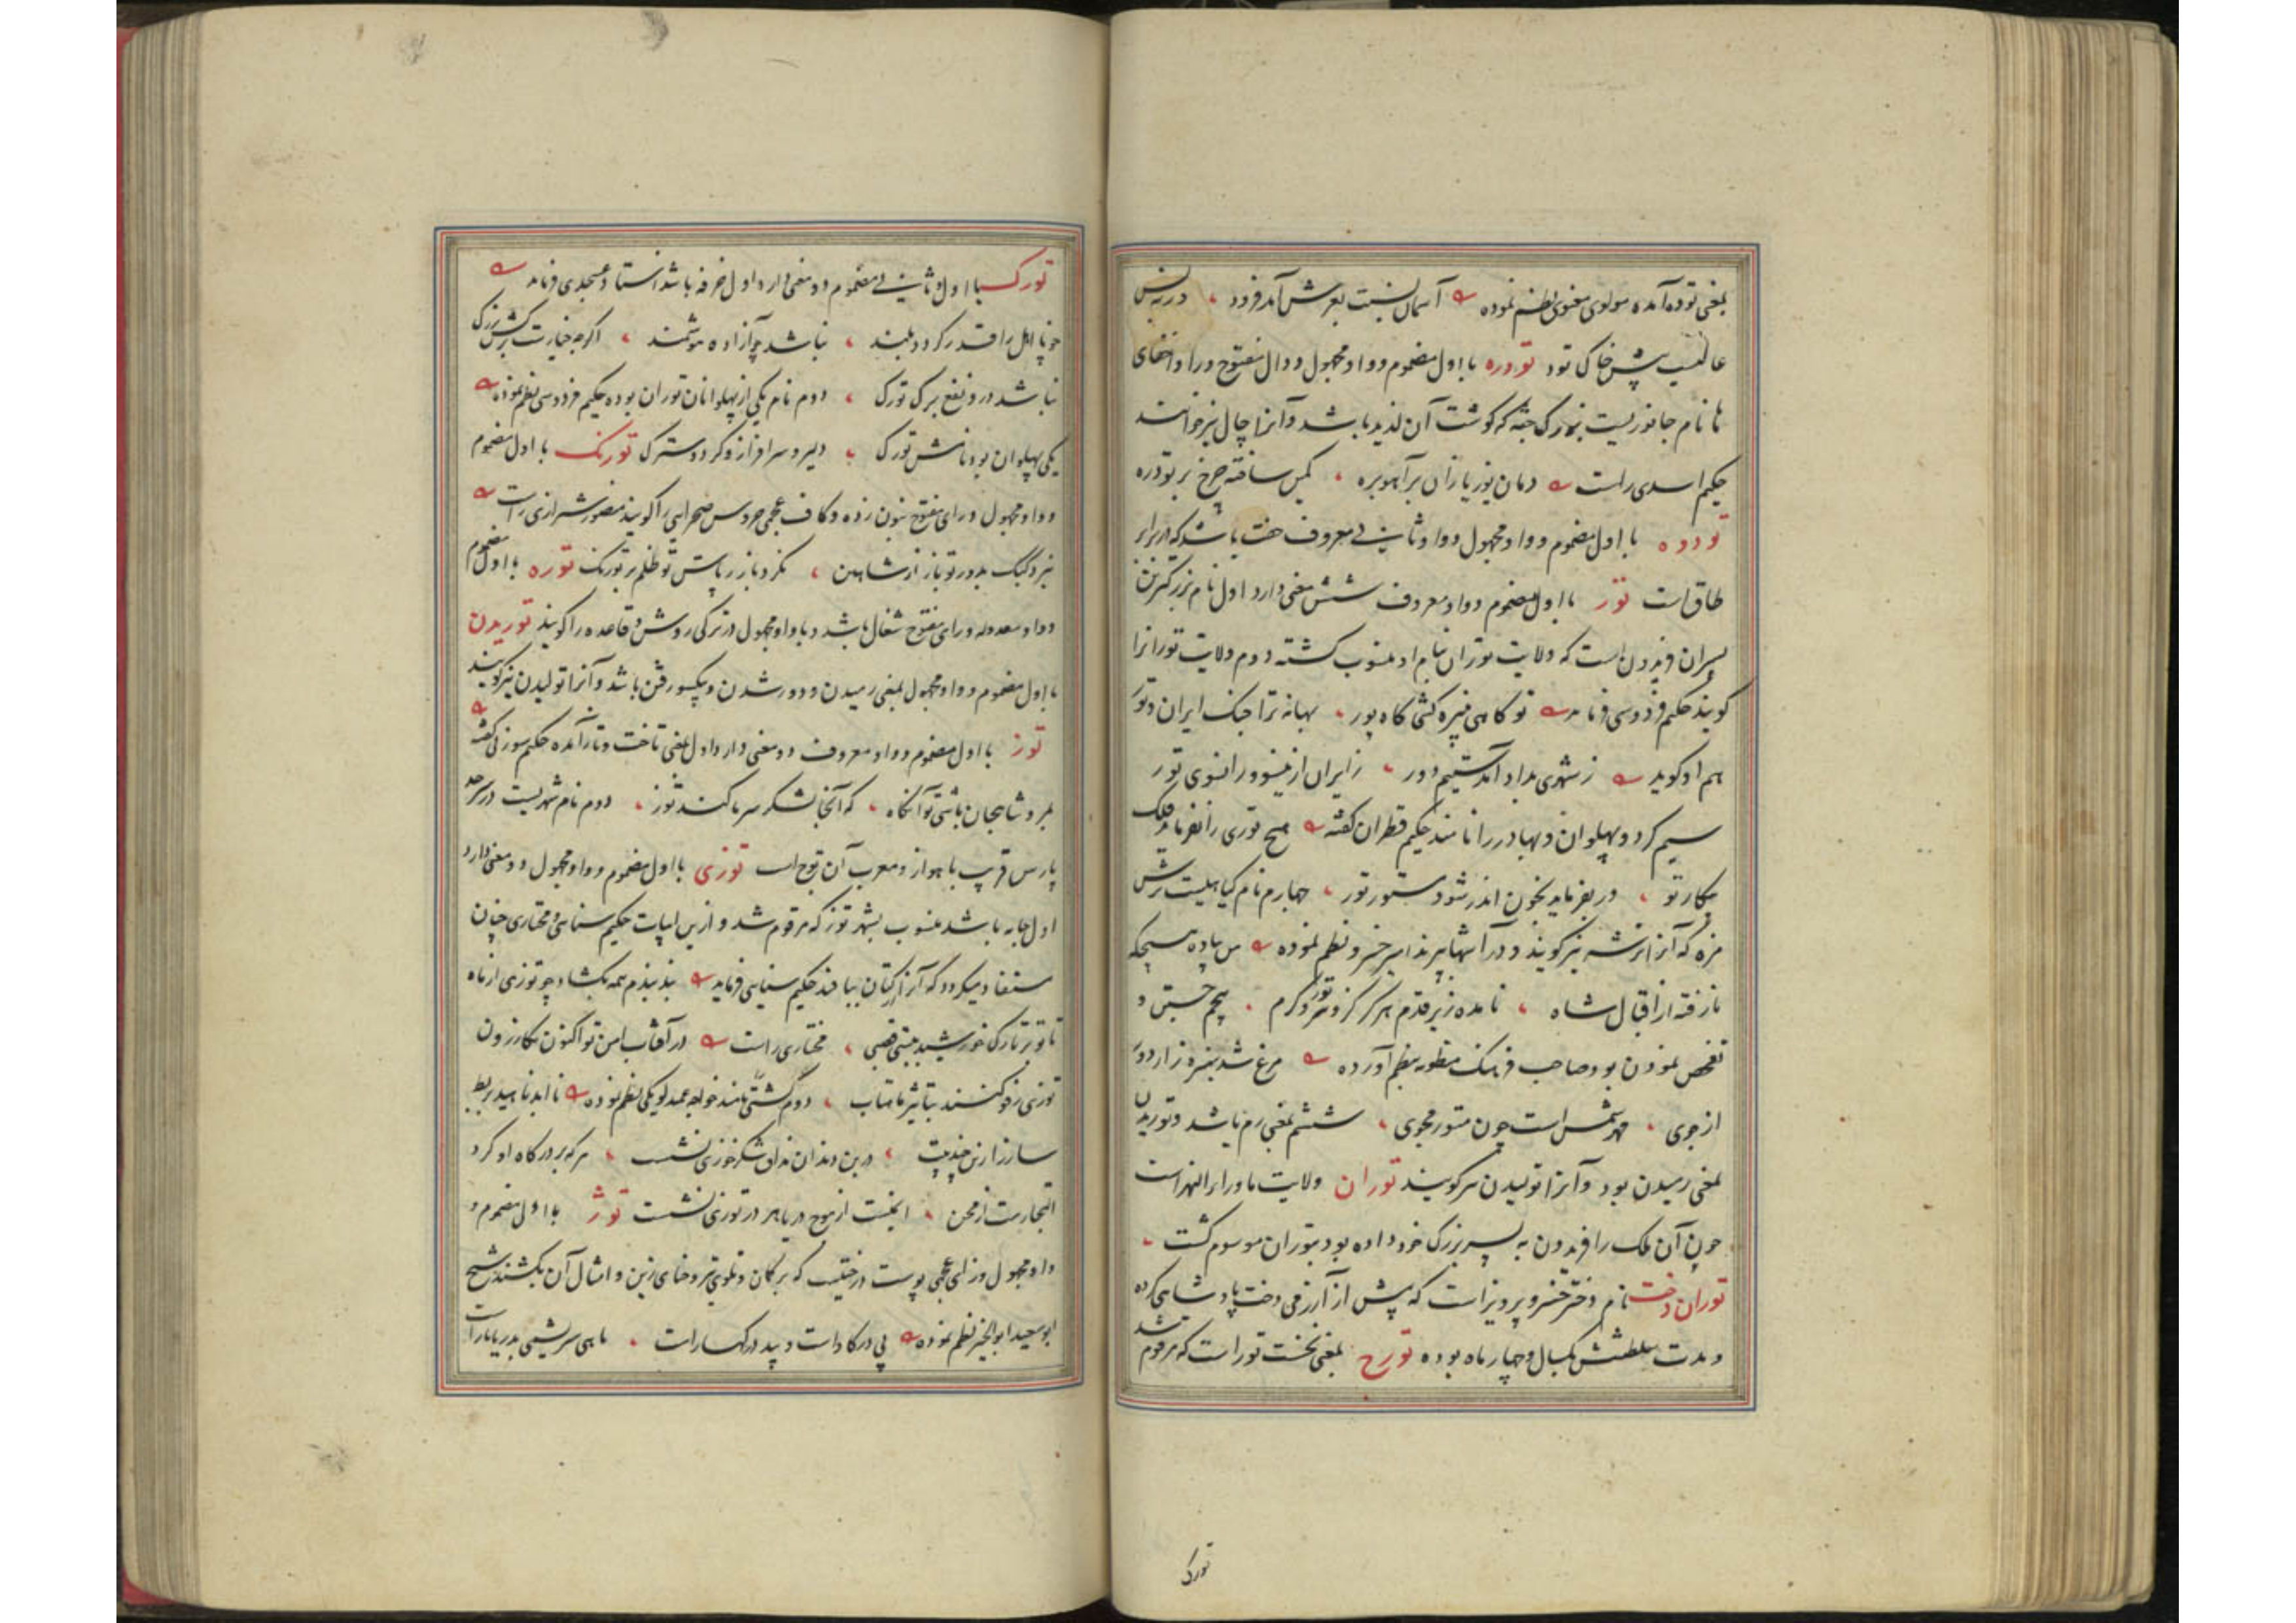 بمعنی توده آمده مولوی معنوی نظم نموده آسمان نسبت بعرش آمد فرود ورنه بس
عالیست پیش خاک تود تودره با اول مضموم و واو مجهول و دال مفتوح و را و اخفای
ها نام جانوریست بزرک جثه که کوشت آن لذیذ باشد و آنرا چال نیز خوانند
حکیم اسدی راست دمان یوز یازان بر آهوبره کمین ساخته چرخ بر تودره
تودوه با اول مضموم و واو مجهول و واو ثانی معروف جفت باشد که در برابر
طاق است تور با اول مضموم و واو معروف شش معنی دارد اول نام بزرکترین
پسران فریدون است که ولایت توران بنام او منسوب کشته دوم ولایت تورانرا
کویند حکیم فردوسی فرماید تو کاهی کشی کاه پور بهانه ترا جنک ایران و تور
هم او کوید ز شهری بداد آمدستیم دور ز ایران ازینسو و زانسوی تور
سیم کرد و پهلوان و بهادر را نامند حکیم قطران کفته هیچ توری را نفرماید فلک
پیکار تو ور بفرماید بخون اندر شود ستور تور چهارم نام کیاهیست ترش
مزه که آنرا ترشه نیز کویند و در آشها پزند امیر خسرو نظم نموده من پیاده
نا رفته از اقبال شاه نامده زیر قدم هرکز کز و تور و کرم پنجم جستن و
تفحص نمودن بود صاحب فرهنک منظومه بنظم آورده مرغ شد بسبزه زار دور
از جوی مهر شمس است چون متور مجوی ششم بمعنی رم باشد و توریدن
بمعنی رمیدن بود و آنرا تولیدن نیز کویند توران ولایت ماوراء النهر است
چون آن ملک را فریدون به پسر بزرک خود داده بود بتوران موسوم کشت
توران دخت نام دختر خسرو پرویز است که پیش از آزرمی دخت پادشاهی کرده
و مدت سلطنتش یکسال و چهار ماه بوده تورج بمعنی نخست تور است که مرقوم شد
تورک
تورک با اول و ثانی مضموم دو معنی دارد اول خرفه باشد استاد عسجدی فرماید
چو نااهل را قدر کردد بلند نباشد چو آزاده هوشمند اکرچه خیارست برش بزرک
نباشد درو نفع برک تورک دوم نام یکی از پهلوانان توران بوده حکیم فردوسی نظم نموده
یکی پهلوان بود نامش تورک دلیر و سرافراز و کرد و سترک تورنک با اول مضموم
و واو مجهول و رای مفتوح بنون زده و کاف عجمی خروس صحرایی را کویند منصور شیرازی راست
نبرد کبک بدور تو باز از شاهین نکرد باز ز پاس تو ظلم بر تورنک توره با اول مضموم
و واو معدوله و رای مفتوح شغال باشد و با واو مجهول در ترکی روش و قاعده را کویند توریدن
با اول مضموم و واو مجهول بمعنی رمیدن و دور شدن و یکسو رفتن باشد و آنرا تولیدن نیز کویند
توز با اول مضموم و واو معروف دو معنی دارد اول بمعنی تاخت و تاراج آمده حکیم سوزنی کفته
بمرو شاهجان باشی تو آنکاه که آنجا لشکر سرما کند توز دوم نام شهریست در سرحد
پارس قریب باهواز و معرب آن توج است توزی با اول مضموم و واو مجهول دو معنی دارد
اول جامه باشد منسوب بشهر توز که مرقوم شد و ازین ابیات حکیم سنائی و مختاری چنان
مستفاد میکردد که آنرا از کتان ببافند حکیم سنایی فرماید بند بندم همه بکشاد چو توزی از ماه
تا تو بر تارک خورشید ببستی قصبی مختاری راست در آفتاب امن تو اکنون بکازرون
توزی رفو کنند بتاثیر ماهتاب دوم کشتی را نامند خواجه عمید لویکی نظم نموده تا ابد ناهید بربط
ساز زارین درین دندان مذاق شکر خوزی نشست هر که بر درکاه او کرد
التجا رست از محن ایمنست از موج دریا هر که در توزی نشست توژ با اول مضموم و
واو مجهول و زای عجمی پوست درختیست که بر کمان و تلوی تیر و حنای زین و امثال آن بکشند شیخ
ابو سعید ابوالخیر نظم نموده پی در کاو است و پید در کهسارست ماهی سریشمی بدریا بارست